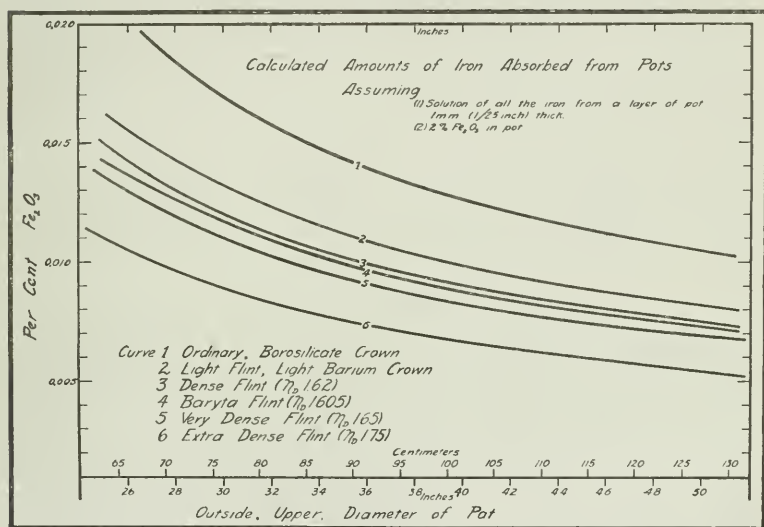 0.020
Inches
Calculated Amounts of Iron Absorbed from Pots
Assuming
(1) Solution of all the iron from a layer of pot
1mm (1/25 inch) thick.
(2) 2% Fe₂O₃ in pot
0.015
0.010
0.005
Per Cent Fe₂O₃
1
2
3
4
5
6
Curve 1 Ordinary, Borosilicate Crown
2 Light Flint, Light Barium Crown
3 Dense Flint (η_D 1.62)
4 Baryta Flint (η_D 1.605)
5 Very Dense Flint (η_D 1.65)
6 Extra Dense Flint (η_D 1.75)
Centimeters
65 70 75 80 85 90 95 100 105 110 115 120 125 130
26 28 30 32 34 36 38 Inches 40 42 44 46 48 50
Outside, Upper, Diameter of Pot